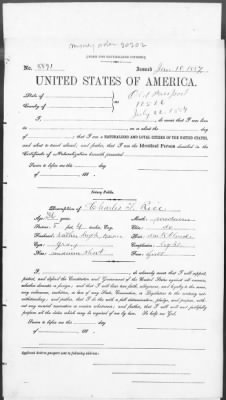 FORM FOR NATURALIZED CITIZEN.
No. 5891 Issued Jan. 18. 1887
UNITED STATES OF AMERICA.
State of
County of
Old Passport
July
I, do swear that I was born
on or about the day
of ; that I am a NATURALIZED AND LOYAL CITIZEN OF THE UNITED STATES,
and about to travel abroad; and further, that I am the Identical Person described in the
Certificate of Naturalization herewith presented.
Sworn to before me this day
of 188 .
Notary Public.
Description of Charles T. Rice
Age: 36 years. Mouth: medium
Stature: 5 feet inches, Eng. Chin: do
Forehead: rather high Hair: dark
Eyes: Gray Complexion: light
Nose: medium short Face: full
I, do solemnly swear that I will support,
protect, and defend the Constitution and Government of the United States against all enemies,
whether domestic or foreign; and that I will bear true faith, allegiance, and loyalty to the same,
any ordinance, resolution, or law of any State, Convention, or Legislature to the contrary not-
withstanding; and further, that I do this with a full determination, pledge, and purpose, with-
out any mental reservation or evasion whatsoever; and further, that I will well and faithfully
perform all the duties which may be required of me by law. So help me God.
Sworn to before me this day
of 188 .
Applicant desires passport to be sent to following address: